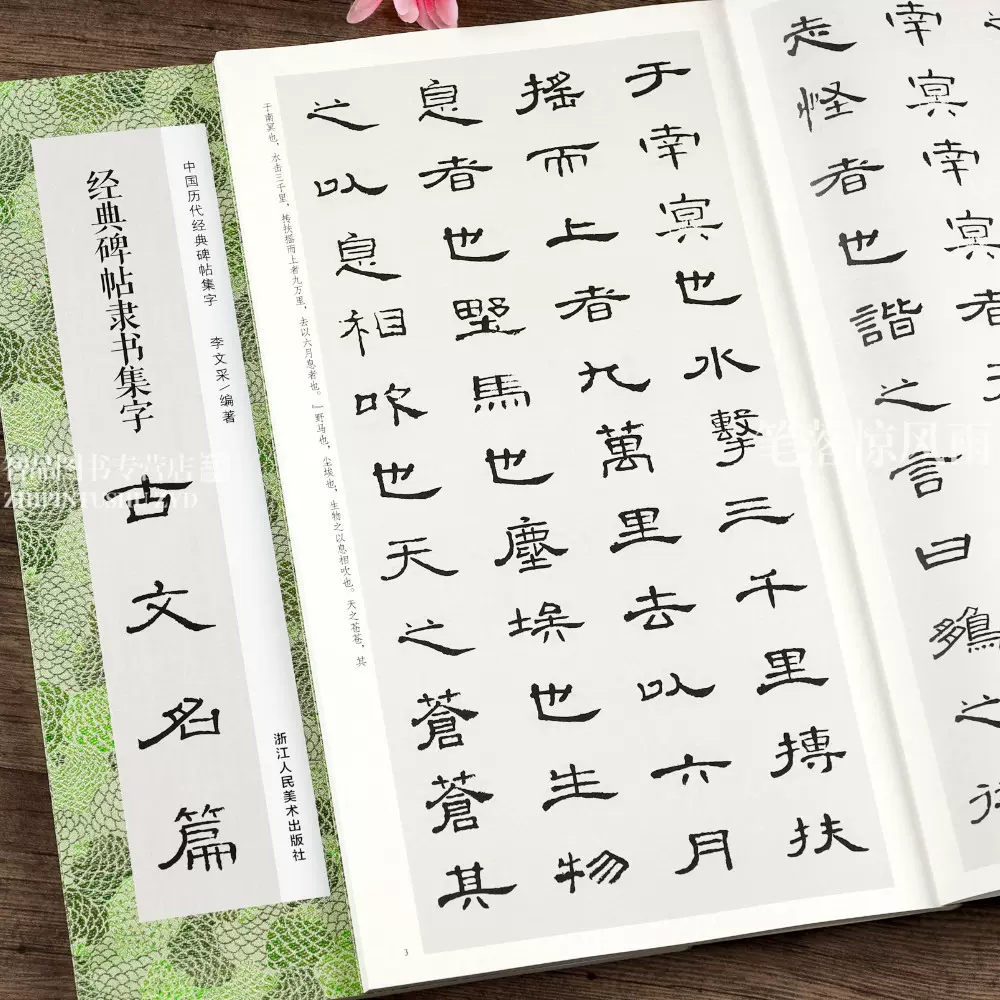 中国历代经典碑帖集字 李文采/编著 浙江人民美术出版社
经典碑帖隶书集字
古文名篇
南冥南冥者
志怪者也諧之言曰鵬之徙
于南冥也水擊三千里搏扶
搖而上者九萬里去以六月
息者也野馬也塵埃也生物
之以息相吹也天之蒼蒼其
于南冥也，水击三千里，抟扶摇而上者九万里，去以六月息者也。』野马也，尘埃也，生物之以息相吹也。天之苍苍，其
3
智品图书专营店
ZHIPINTUSHUZYD
笔落惊风雨